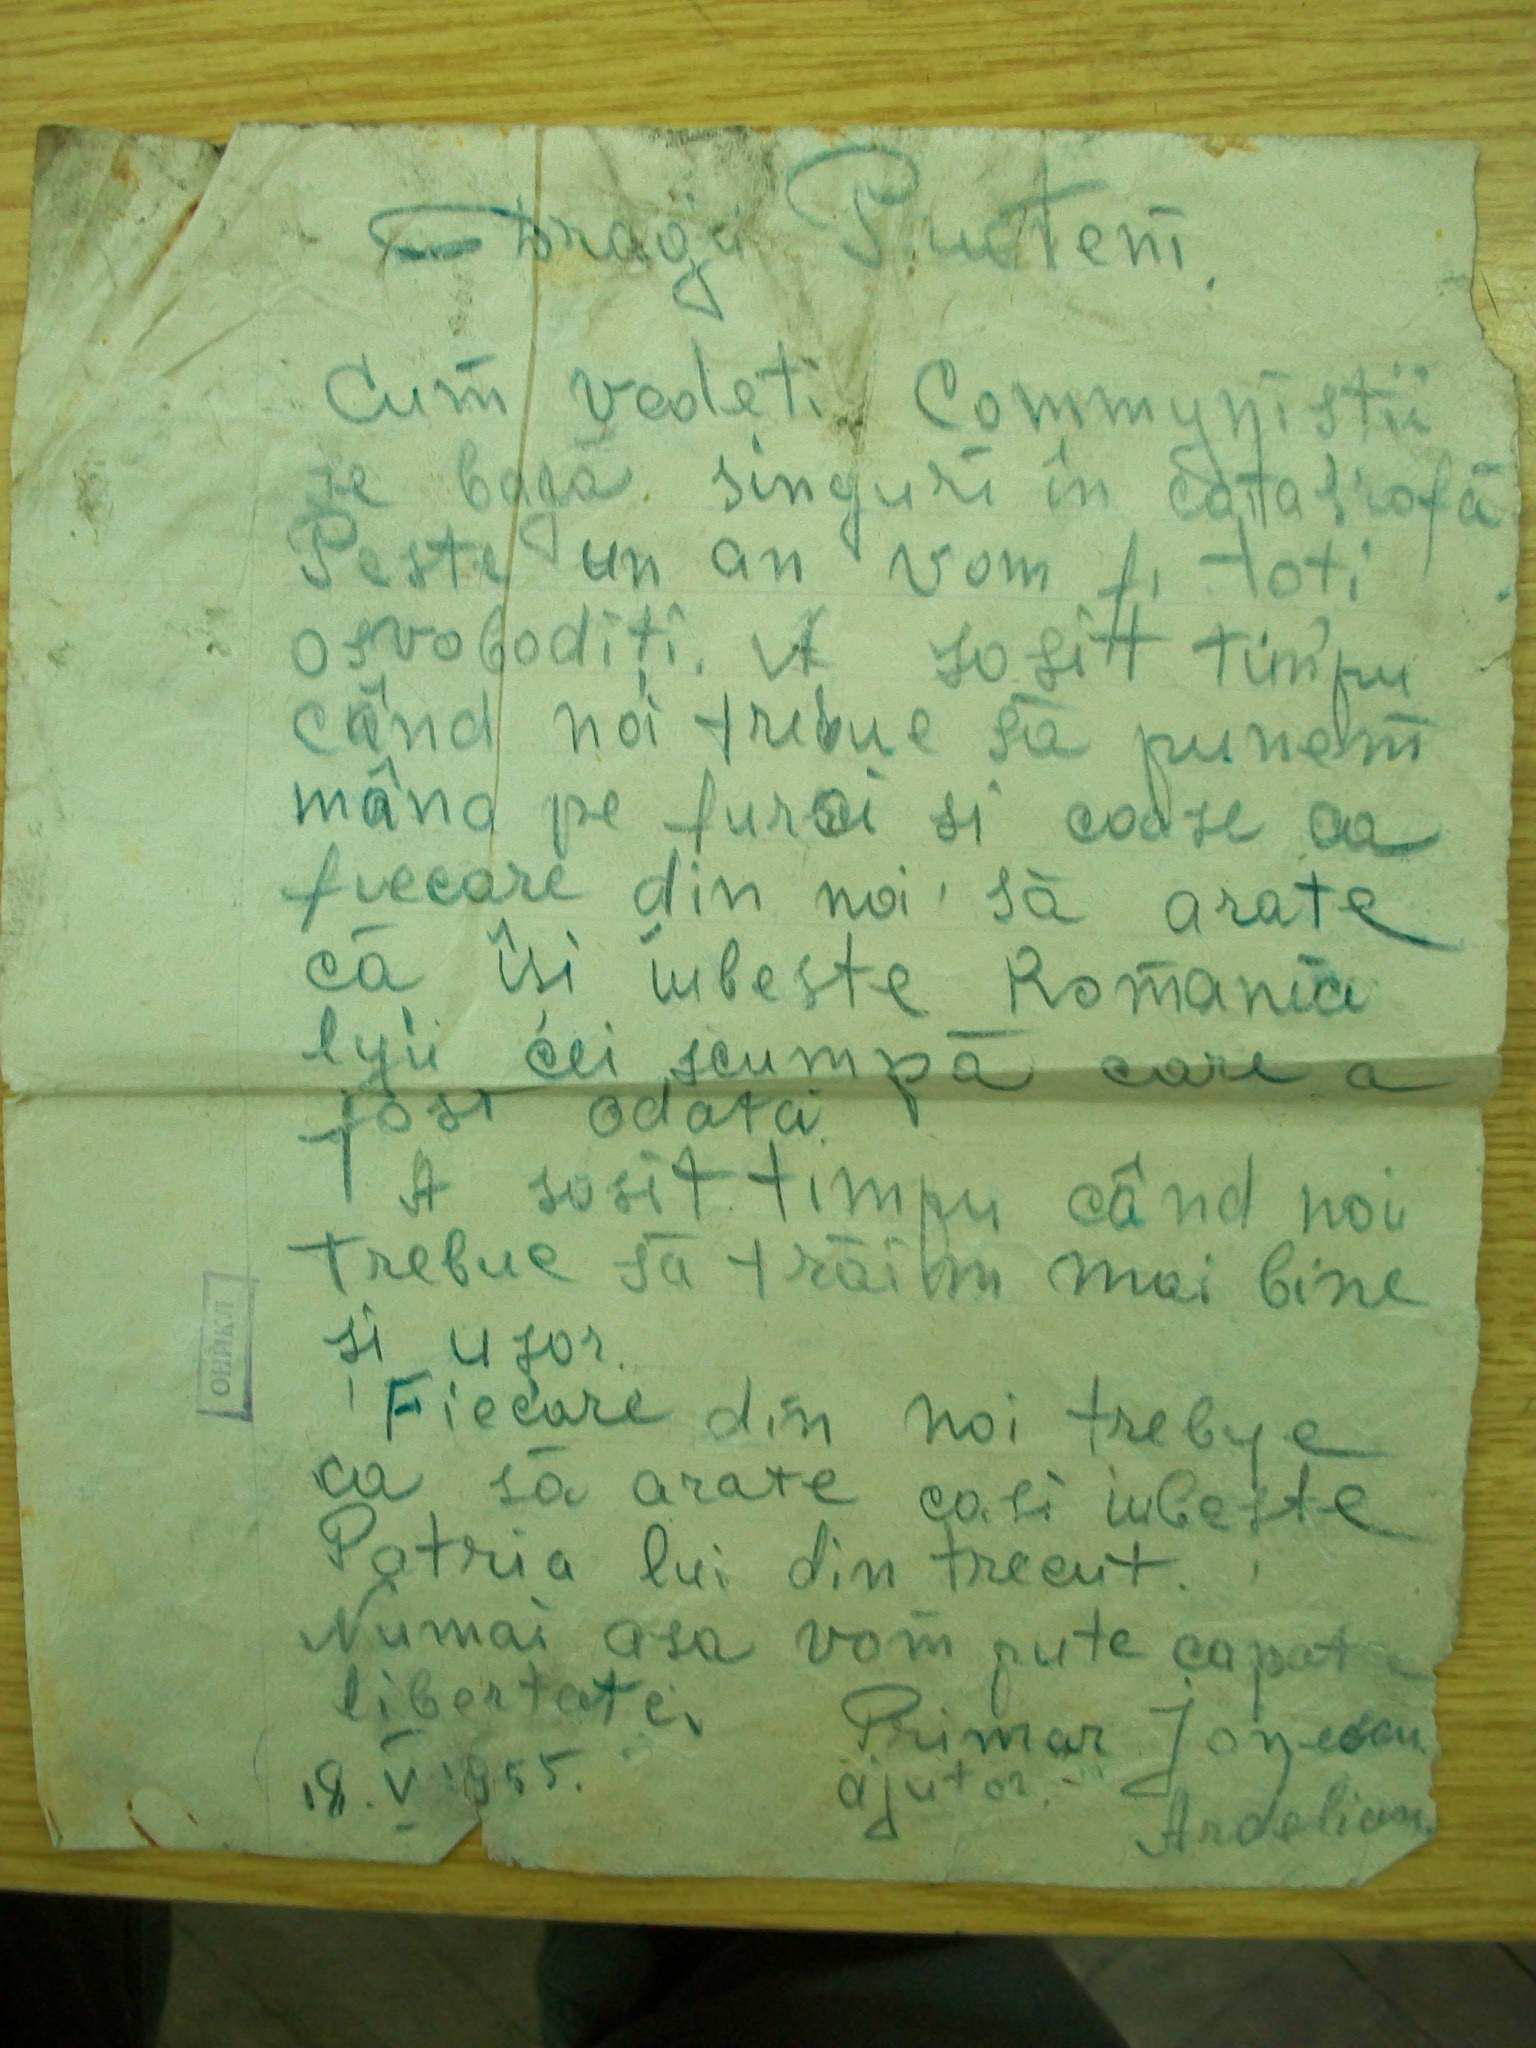 Dragii Prieteni.
Cum vedeti Communistii
se bagă singuri în catastrofă
Peste un an vom fi toti
osvobodiți. A sosit timpu
când noi trebue să punem
mâna pe furci si coase ca
fiecare din noi să arate
că îsi iubeste Romania
lyii cei scumpă care a
fost odată.
A sosit timpu când noi
trebue să trăim mai bine
si usor.
Fiecare din noi trebye
ca să arate casi iubeste
Patria lui din trecut.
Numai asa vom pute capata
libertate.
Primar Jonescu.
18.V 1955.
ajutor.
Ardelian.
ОНИКЛ